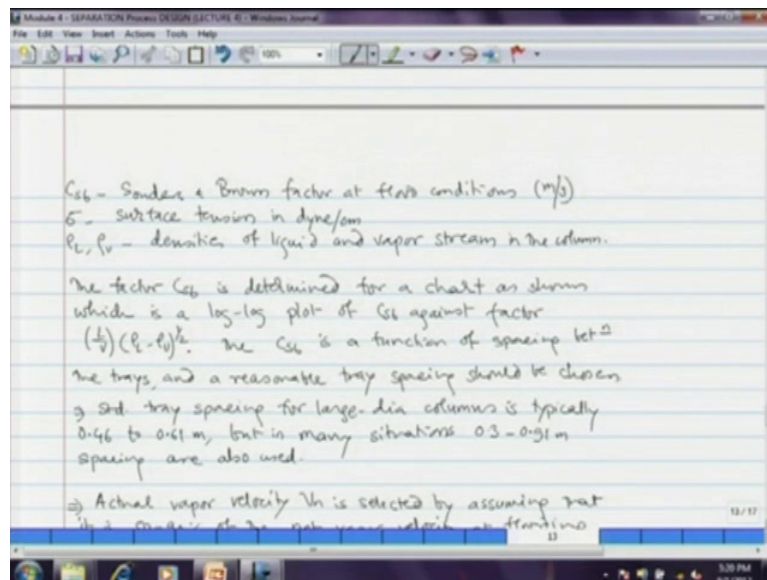 Module 4 - SEPARATION Process DESIGN (LECTURE 4) - Windows Journal
File Edit View Insert Actions Tools Help
100%
Csb - Souders & Brown factor at flood conditions (m/s)
σ - surface tension in dyne/cm
ρL, ρv - densities of liquid and vapor stream in the column.
The factor Csb is determined for a chart as shown
which is a log-log plot of Csb against factor
(L/V)(ρL-ρv)^½. The Csb is a function of spacing betⁿ
the trays, and a reasonable tray spacing should be chosen
⇒ Std. tray spacing for large-dia columns is typically
0.46 to 0.61 m, but in many situations 0.3 - 0.91 m
spacing are also used.
⇒ Actual vapor velocity Vn is selected by assuming that
13 / 17
13
5:20 PM